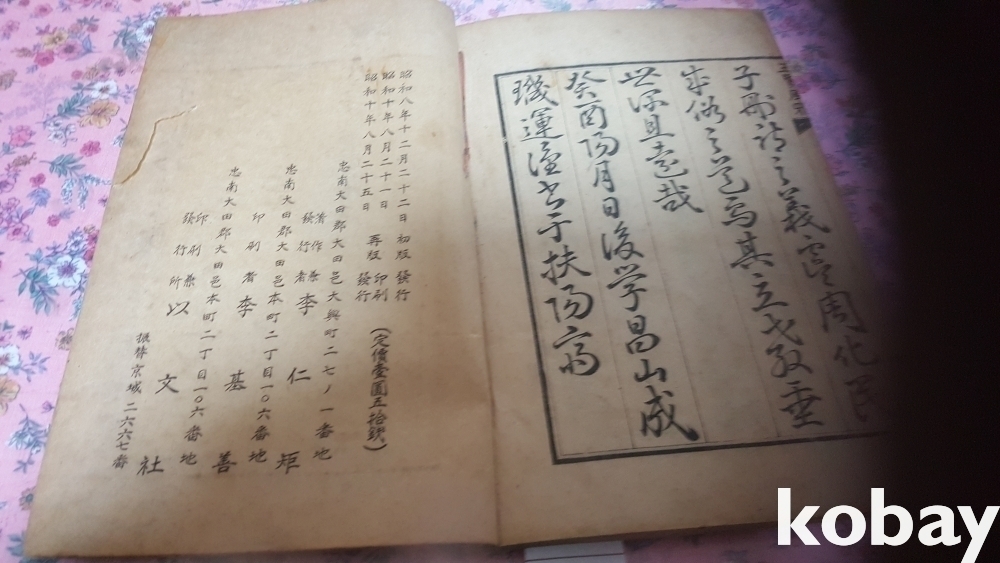 子刪詩之義 周化民
成俗之道焉其立教垂
世深且遠哉
癸酉陽月日後学昌山成
璣運謹書于扶陽齋
昭和八年十二月二十二日 初版 發行
昭和十年八月二十一日 再版 印刷
昭和十年八月二十五日 發行
(定價壹圓五拾錢)
忠南大田郡大田邑大興町二七ノ一番地
著作兼發行者 李仁矩
忠南大田郡大田邑本町二丁目一〇六番地
印刷者 李基善
忠南大田郡大田邑本町二丁目一〇六番地
印刷兼發行所 以文社
振替京城二六六七番
kobay